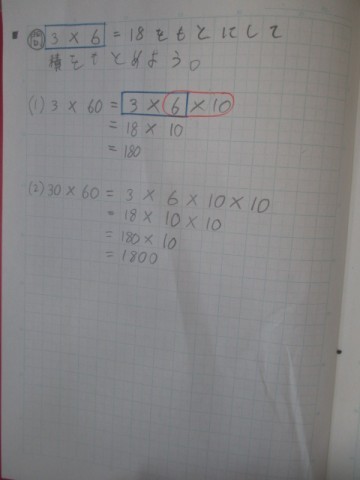 3 × 6 = 18をもとにして
積をもとめよう。
(1) 3 × 60 = 3 × 6 × 10
= 18 × 10
= 180
(2) 30 × 60 = 3 × 6 × 10 × 10
= 18 × 10 × 10
= 180 × 10
= 1800